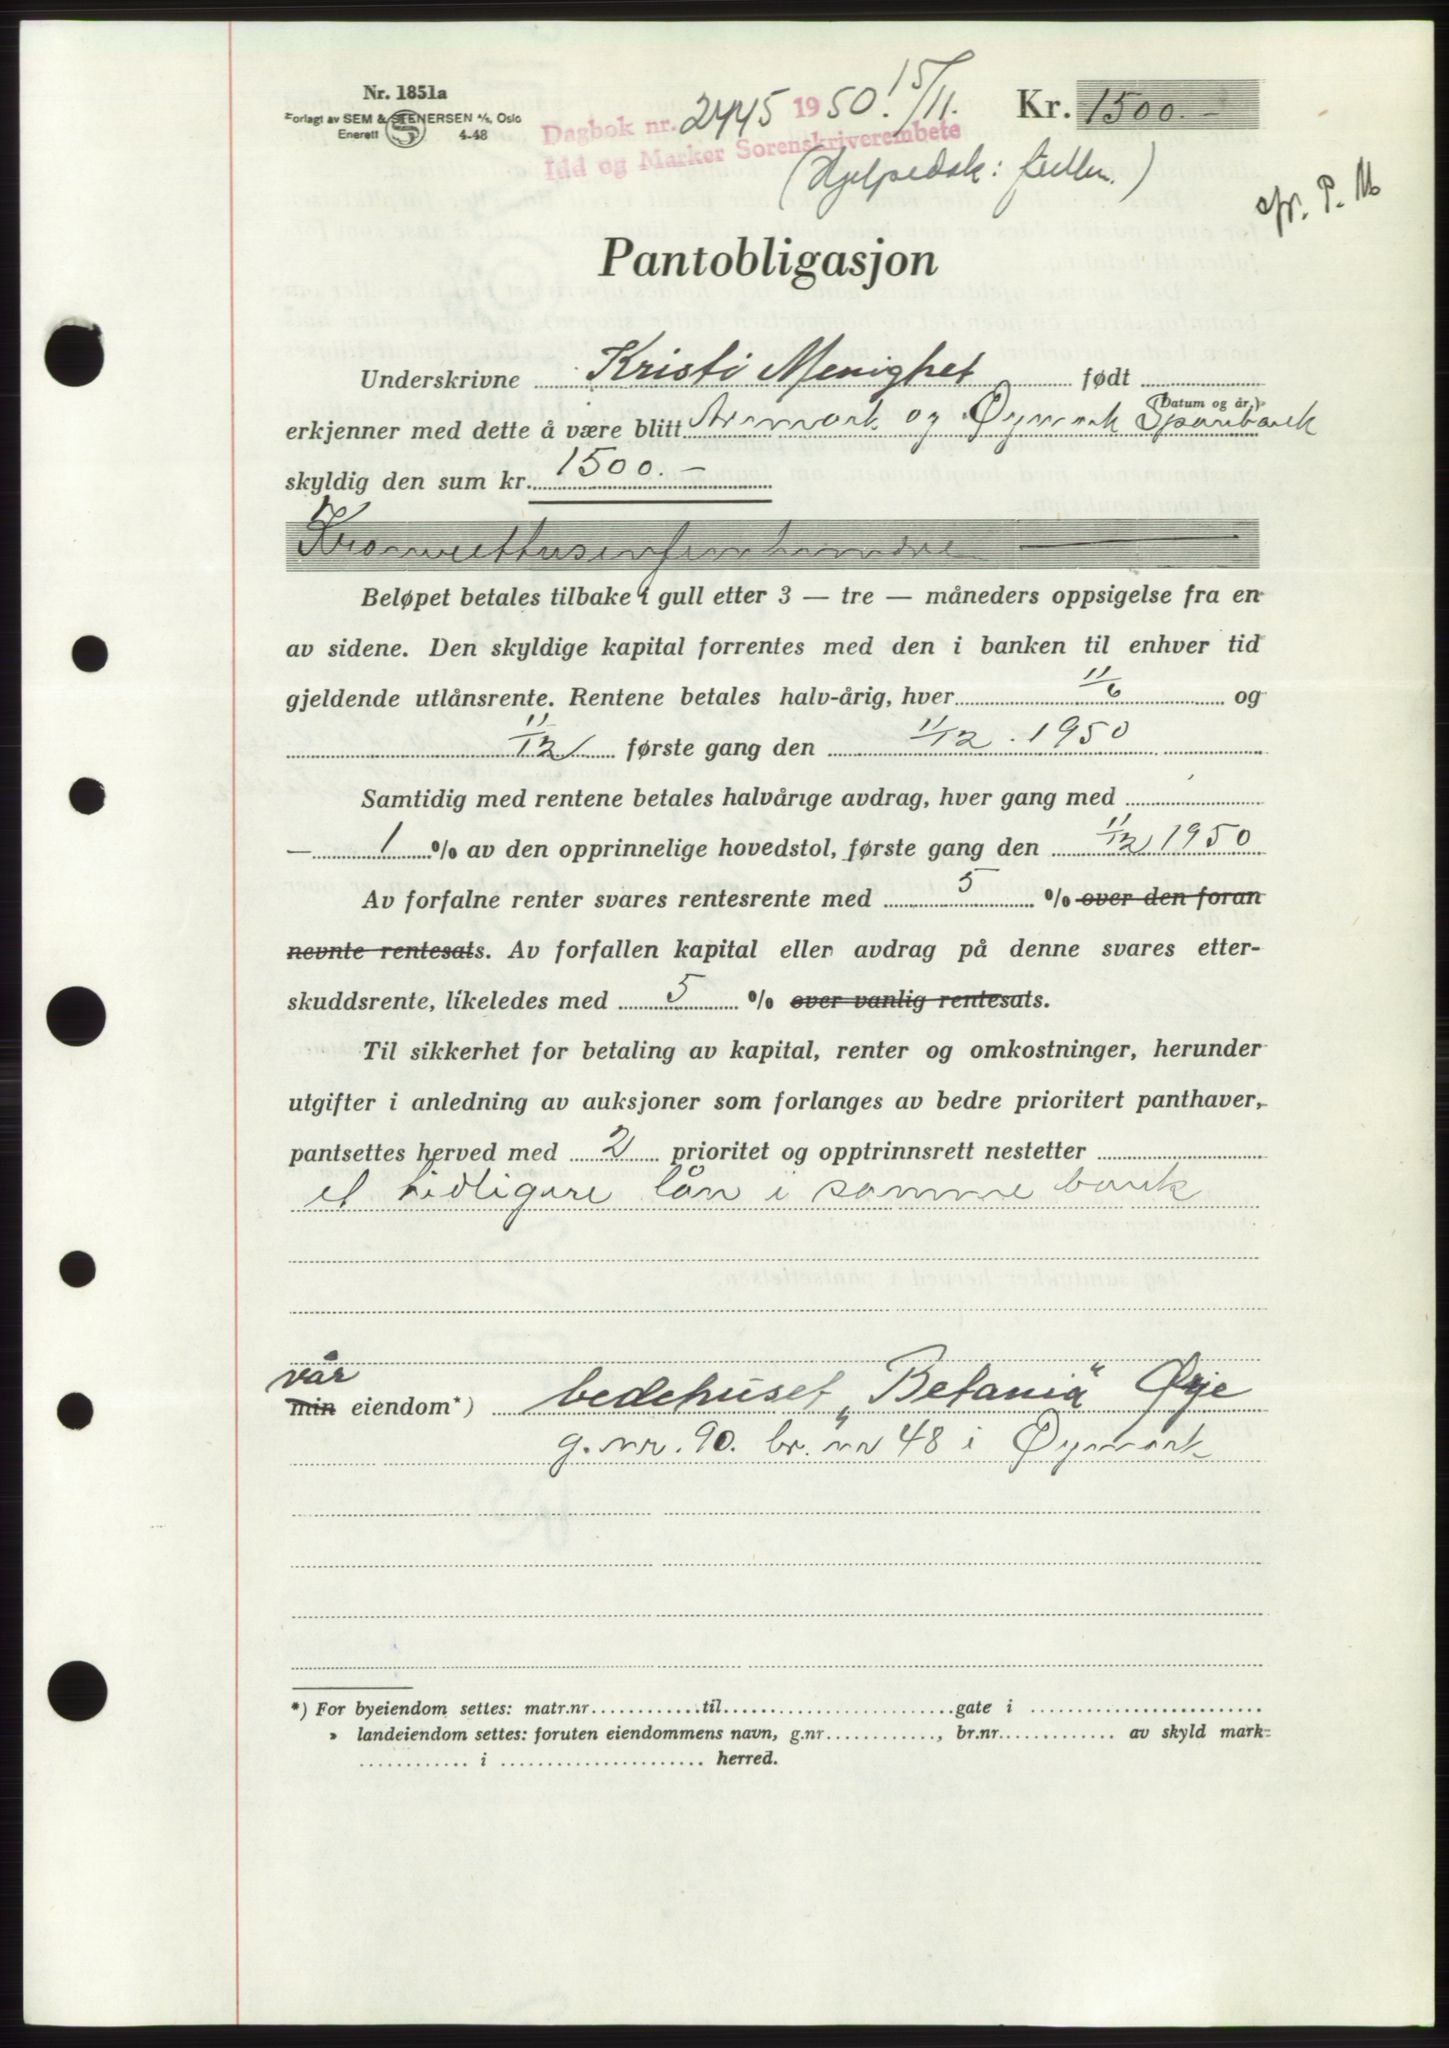 Nr. 1851a
Forlagt av SEM & STENERSEN A/S, Oslo
Enerett 4-48
Dagbok nr. 2445 1950. 15/11.
Idd og Marker Sorenskriverembete
Kr. 1500.-
Pantobligasjon
Underskrivne Kristi Menighet født
(Datum og år.)
erkjenner med dette å være blitt Aremark og Øymark Sparebank
skyldig den sum kr. 1500.-
Kroneretttusenfemhundre
Beløpet betales tilbake i gull etter 3 — tre — måneders oppsigelse fra en
av sidene. Den skyldige kapital forrentes med den i banken til enhver tid
gjeldende utlånsrente. Rentene betales halv-årig, hver 11/6 og
11/12 første gang den 11/12. 1950
Samtidig med rentene betales halvårige avdrag, hver gang med
— 1 % av den opprinnelige hovedstol, første gang den 11/12 1950
Av forfalne renter svares rentesrente med 5 % over den foran
nevnte rentesats. Av forfallen kapital eller avdrag på denne svares etter-
skuddsrente, likeledes med 5 % over vanlig rentesats.
Til sikkerhet for betaling av kapital, renter og omkostninger, herunder
utgifter i anledning av auksjoner som forlanges av bedre prioritert panthaver,
pantsettes herved med 2 prioritet og opptrinnsrett nestetter
et tidligere lån i samme bank
vår
min eiendom*) bedehuset „Betania" Ørje
g. nr. 90. br. nr 48 i Øymark
*) For byeiendom settes: matr.nr. til gate i
» landeiendom settes: foruten eiendommens navn, g.nr. , br.nr. av skyld mark
i herred.